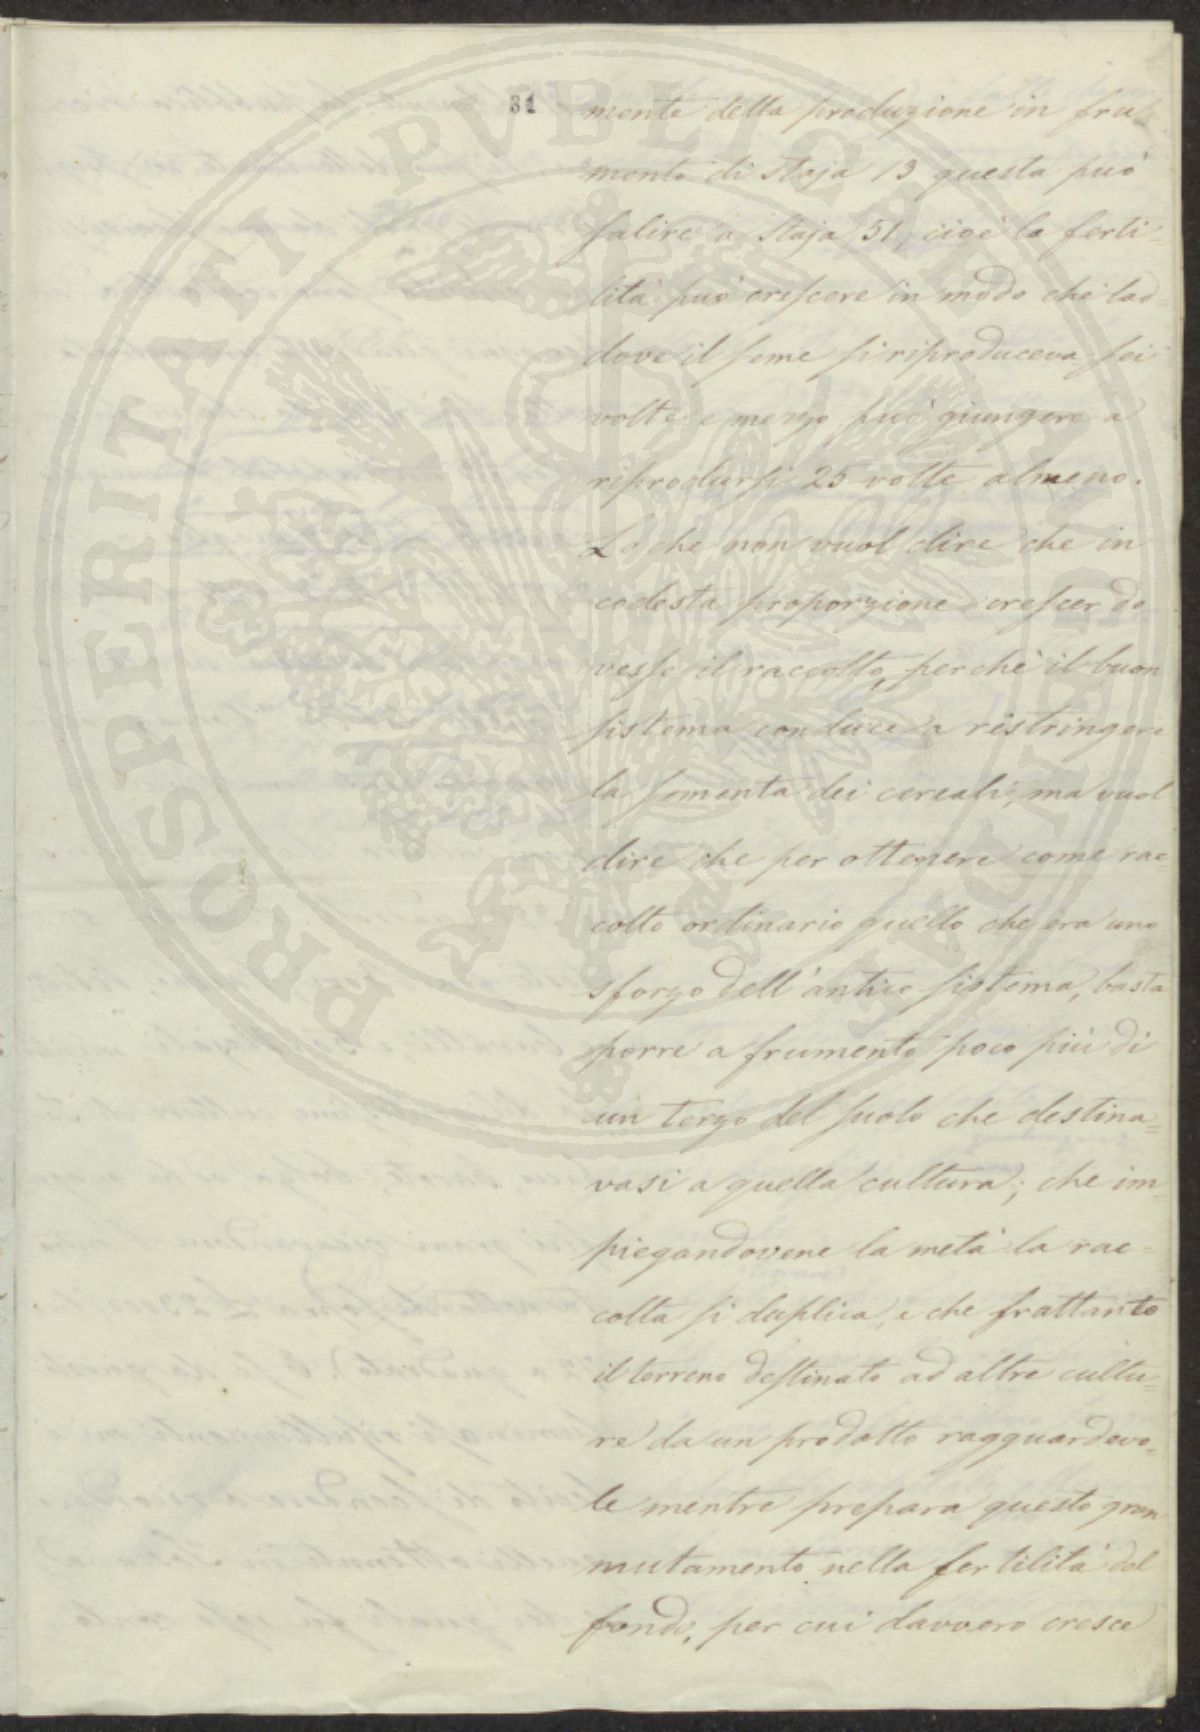 31
mento della produzione in fru
mento di staja 13 questa può
salire a staja 51, cioè la ferti=
lità può crescere in modo che lad=
dove il seme si riproduceva sei
volte e mezzo può giungere a
riprodursi 25 volte almeno.
Lo che non vuol dire che in
codesta proporzione crescer do
vesse il raccolto, perchè il buon
sistema conduce a ristringere
la sementa dei cereali, ma vuol
dire che per ottenere come rac=
colto ordinario quello che era uno
sforzo dell'antico sistema, basta
porre a frumento poco più di
un terzo del suolo che destina=
vasi a quella cultura; che im=
piegandovene la metà la rac=
colta si duplica, e che frattanto
il terreno destinato ad altre cultu=
re da un prodotto ragguardevo=
le mentre prepara questo gran
mutamento nella fertilità del
fondo, per cui davvero cresce
PROSPERITATI PUBLICAE AUGENDAE